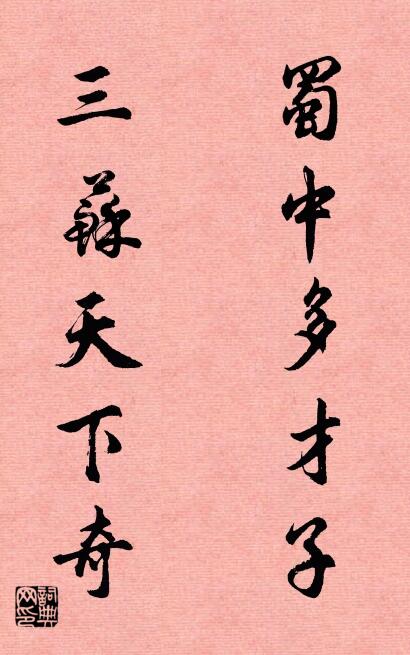 蜀中多才子
三蘇天下奇
詞典网印